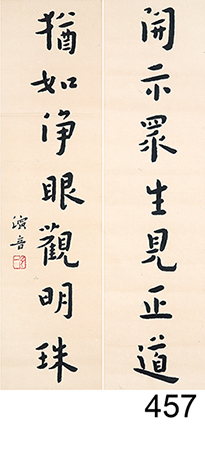 開示眾生見正道
猶如淨眼觀明珠
演音
457